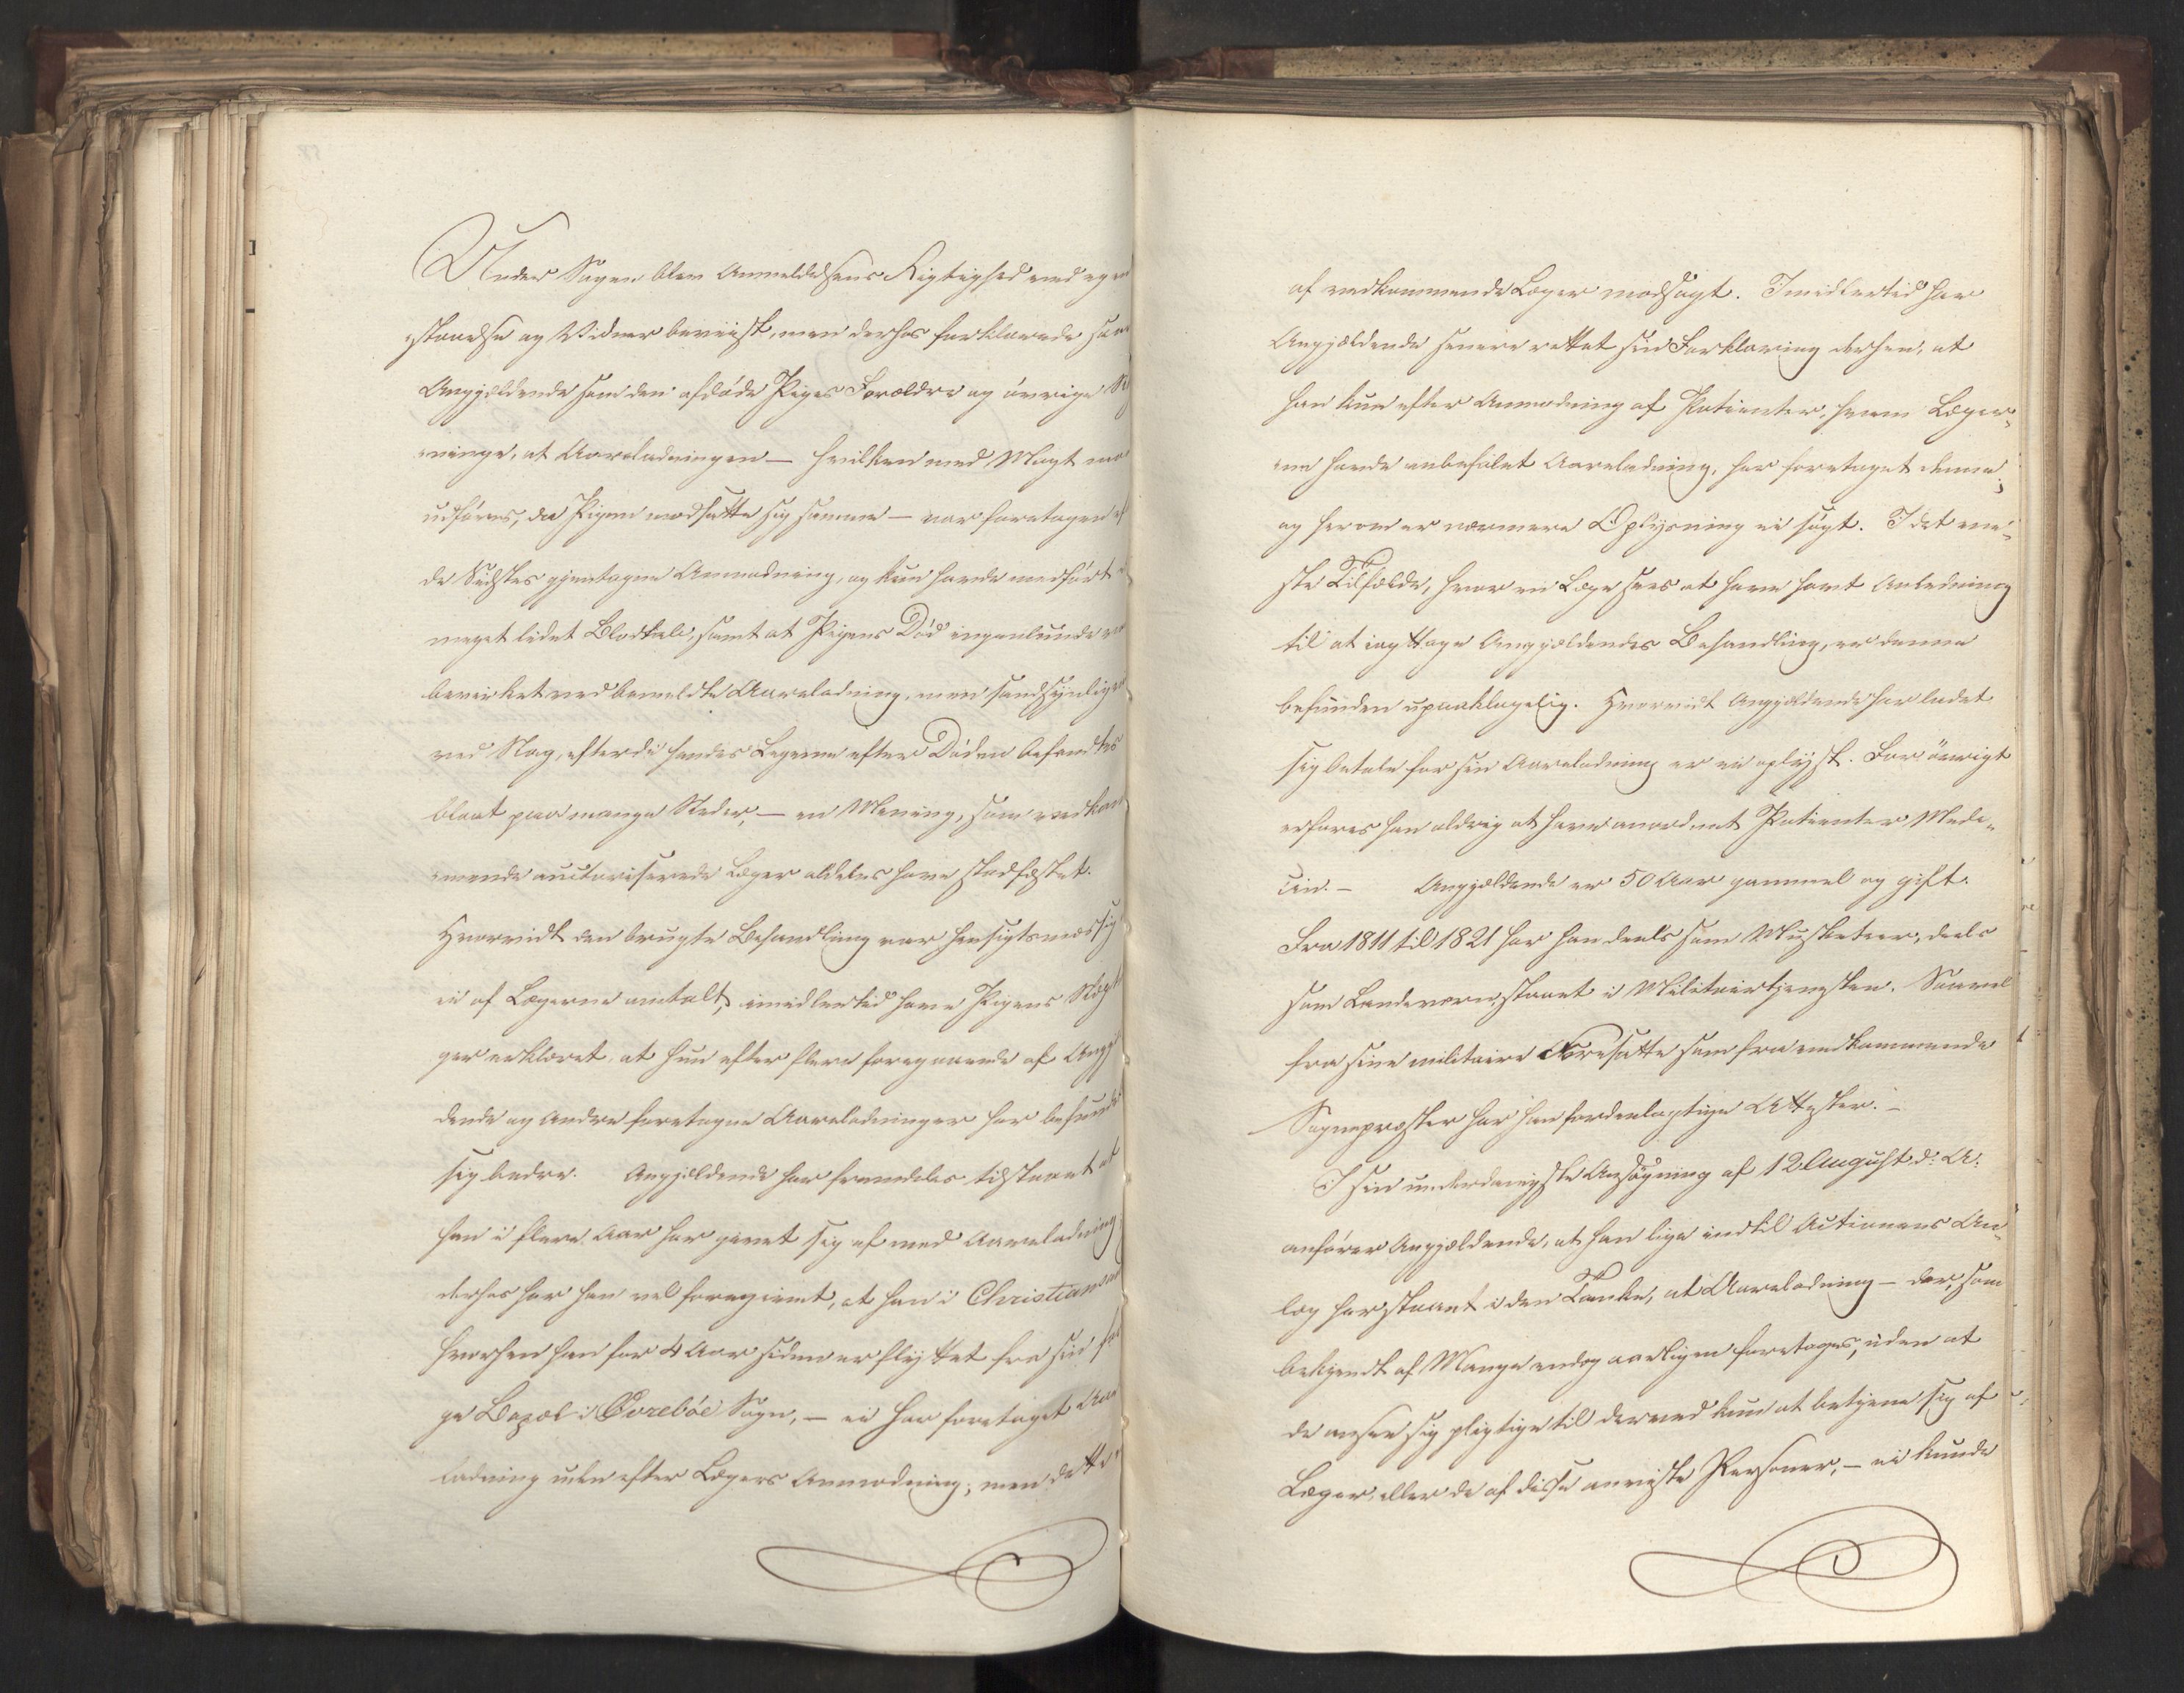 Under Sagen blev Anmeldelsens Rigtighed ved egen
staaelse og Vidner beviist, men derhos forklarede saa
Angjældende som den afdøde Piges Forældre og øvrige
ninge, at Aareladningen – hvilken med Magt maa
udføres, da Pigen modsatte sig samme – var foretagen ef
de Sidstes gjentagne Anmodning, og kun havde medført
meget lidet Blodtab, samt at Pigens Død ingenlunde var
bevirket ved bemeldte Aareladning, men sandsynligen
ved Slag, efterdi hendes Legeme efter Døden befandtes
blaat paa mange Steder, – en Mening, som vedkom
mende auctoriserede Læger aldeles have stadfæstet.
Hvorvidt den brugte Behandling var hensigtsmæssig
ei af Lægerne omtalt, imidlertid have Pigens Slægt
ger erklæret, at hun efter flere foregaaende af Angjæl
dende og Andre foretagne Aareladninger har befundet
sig bedre. Angjældende har fremdeles tilstaaet at
han i flere Aar har givet sig af med Aareladning,
derhos har han vel foregivet, at han i Christiansand
hvorhen han for 4 Aar siden er flyttet fra sin for
ge Bopæl i Øvrebøe Sogn, – ei har foretaget Aare
ladning uden efter Lægers Anmodning; men dette er
af vedkommende Læger modsagt. Imidlertid har
Angjældende senere rettet sin Forklaring derhen, at
han kun efter Anmodning af Patienter, hvem Læger-
ne havde anbefalet Aareladning, har foretaget denne;
og herom er nærmere Oplysning ei søgt. I det ene-
ste Tilfælde, hvor en Læge sees at have havt Anledning
til at iagttage Angjældendes Behandling, er denne
befunden upaaklagelig. Hvorvidt Angjældende har ladet
sig betale for sin Aareladning er ei oplyst. For øvrigt
erfares han aldrig at have anordnet Patienter Medi-
cin. – Angjældende er 50 Aar gammel og gift.
Fra 1811 til 1821 har han deels som Musketeer, deels
som Landeværn, staaet i Militairtjenesten. Saavel
fra sine militaire Foresatte som fra vedkommende
Sognepræster har han fordeelagtige Attester. –
I sin underdanigste Ansøgning af 12 August d: A:
anfører Angjældende, at han lige indtil Actionens An-
læg har staaet i den Tanke, at Aareladning – der, som
bekjendt af Mange endog aarligen foretages, uden at
de ansee sig pligtige til derved kun at betjene sig af
Læger, eller de af disse anviste Personer, – ei kunde